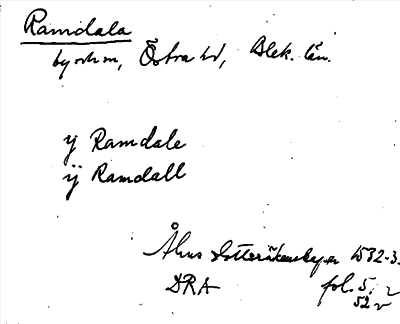 Ramdala
by och sn, Östra hd, Blek. län.
ij Ramdale
ij Ramdall
Åhus slottsräkenskaper 1532-3.
DRA fol. 5. r
52 v